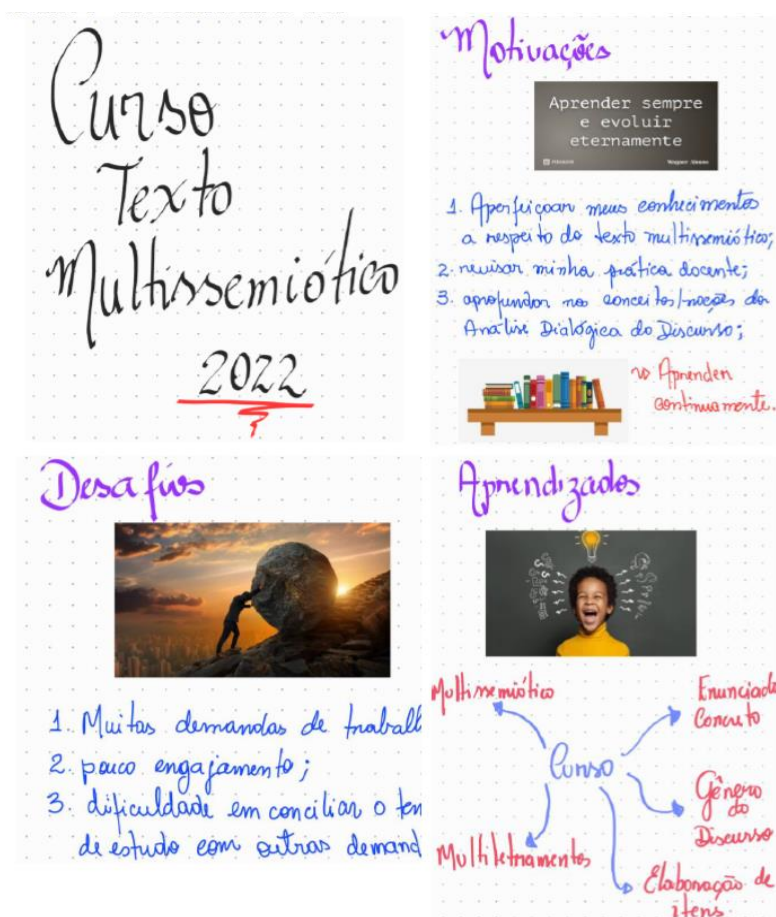 Curso
Texto
Multissemiótico
2022
Motivações
Aprender sempre
e evoluir
eternamente
PENSADOR
Wesguer Alonso
1. Aperfeiçoar meus conhecimentos
a respeito do texto multissemiótico;
2. revisar minha prática docente;
3. aprofundar nos conceitos/noções da
Análise Dialógica do Discurso;
Aprender
continuamente.
Desafios
1. Muitas demandas de trabalh
2. pouco engajamento;
3. dificuldade em conciliar o tem
de estudo com outras demand
Aprendizados
Multissemiótico
Enunciado
Concreto
Curso
Gênero
do
Discurso
Multiletramentos
Elaboração de
itens